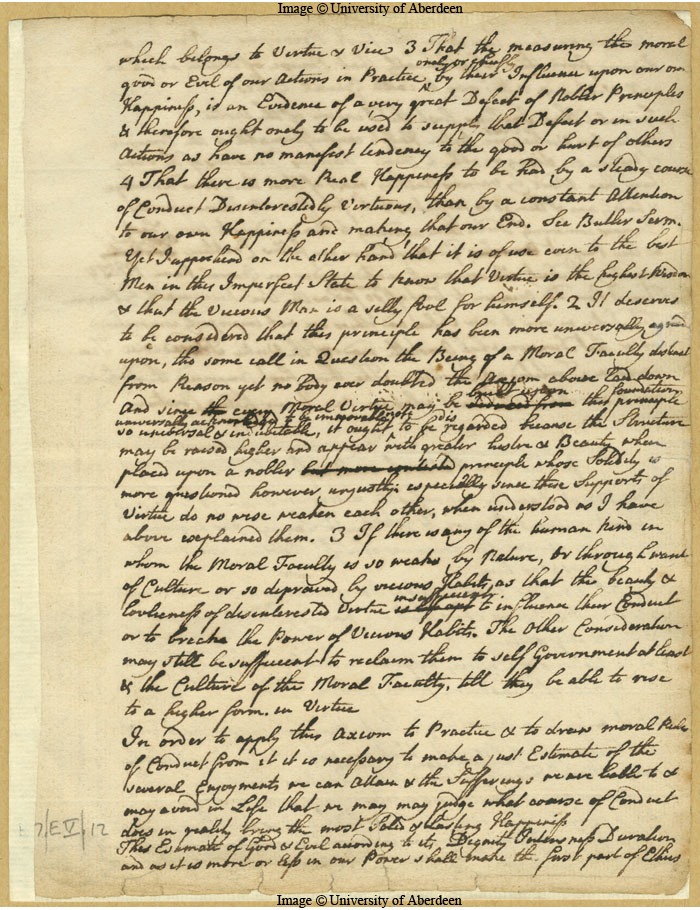 Image © University of Aberdeen
which belongs to Virtue & Vice 3 That the measuring the moral
only or chiefly
good or Evil of our Actions in Practice by their Influence upon our own
Happiness, is an Evidence of a very great Defect of Nobler Principles
& therefore ought onely to be used to supply that Defect or in such
Actions as have no manifest tendency to the good or hurt of others
4 That there is more Real Happiness to be had by a steady course
of Conduct Disinterestedly Virtuous, than by a constant Attention
to our own Happiness and making that our End. See Butler Serm.
Yet I apprehend on the other hand that it is of use even to the best
Men in this Imperfect State to know that Virtue is the highest Wisdom
& that the Vicious Man is a silly fool for himself. 2 It deserves
to be considered that this principle has been more universally agreed
upon, tho some call in Question the Being of a Moral Faculty distinct
from Reason yet no body ever doubted the Axiom above laid down
built upon foundation
And since the every Moral Virtue may be this principle
universally acknowledged to be immoral
so universal & indubitable, it ought to be regarded because the Structure
may be raised higher and appear with greater lustre & Beauty when
placed upon a nobler but more principle whose Solidity is
more questioned however unjustly especially since these Supports of
Virtue do no wise weaken each other, when understood as I have
above explained them. 3 If there is any of the human kind in
whom the Moral Faculty is so weak by Nature, or through want
of Culture or so depraved by vicious Habits, as that the beauty &
insufficient
loveliness of disinterested Virtue is to influence their Conduct
or to break the Power of Vicious Habits. The Other Consideration
may still be sufficient to reclaim them to self Government at least
& the Culture of the Moral Faculty, till they be able to rise
to a higher form in Virtue
In order to apply this Axiom to Practice & to draw moral Rules
of Conduct from it it is necessary to make a just Estimate of the
several Enjoyments we can Attain & the Sufferings we are liable to &
may avoid in Life that we may may judge what course of Conduct
does in reality bring the most Solid & lasting Happiness
This Estimate of Good & Evil according to its Dignity Intenseness Duration
and as it is more or less in our Power shall make the first part of Ethics
7/E V/12
Image © University of Aberdeen